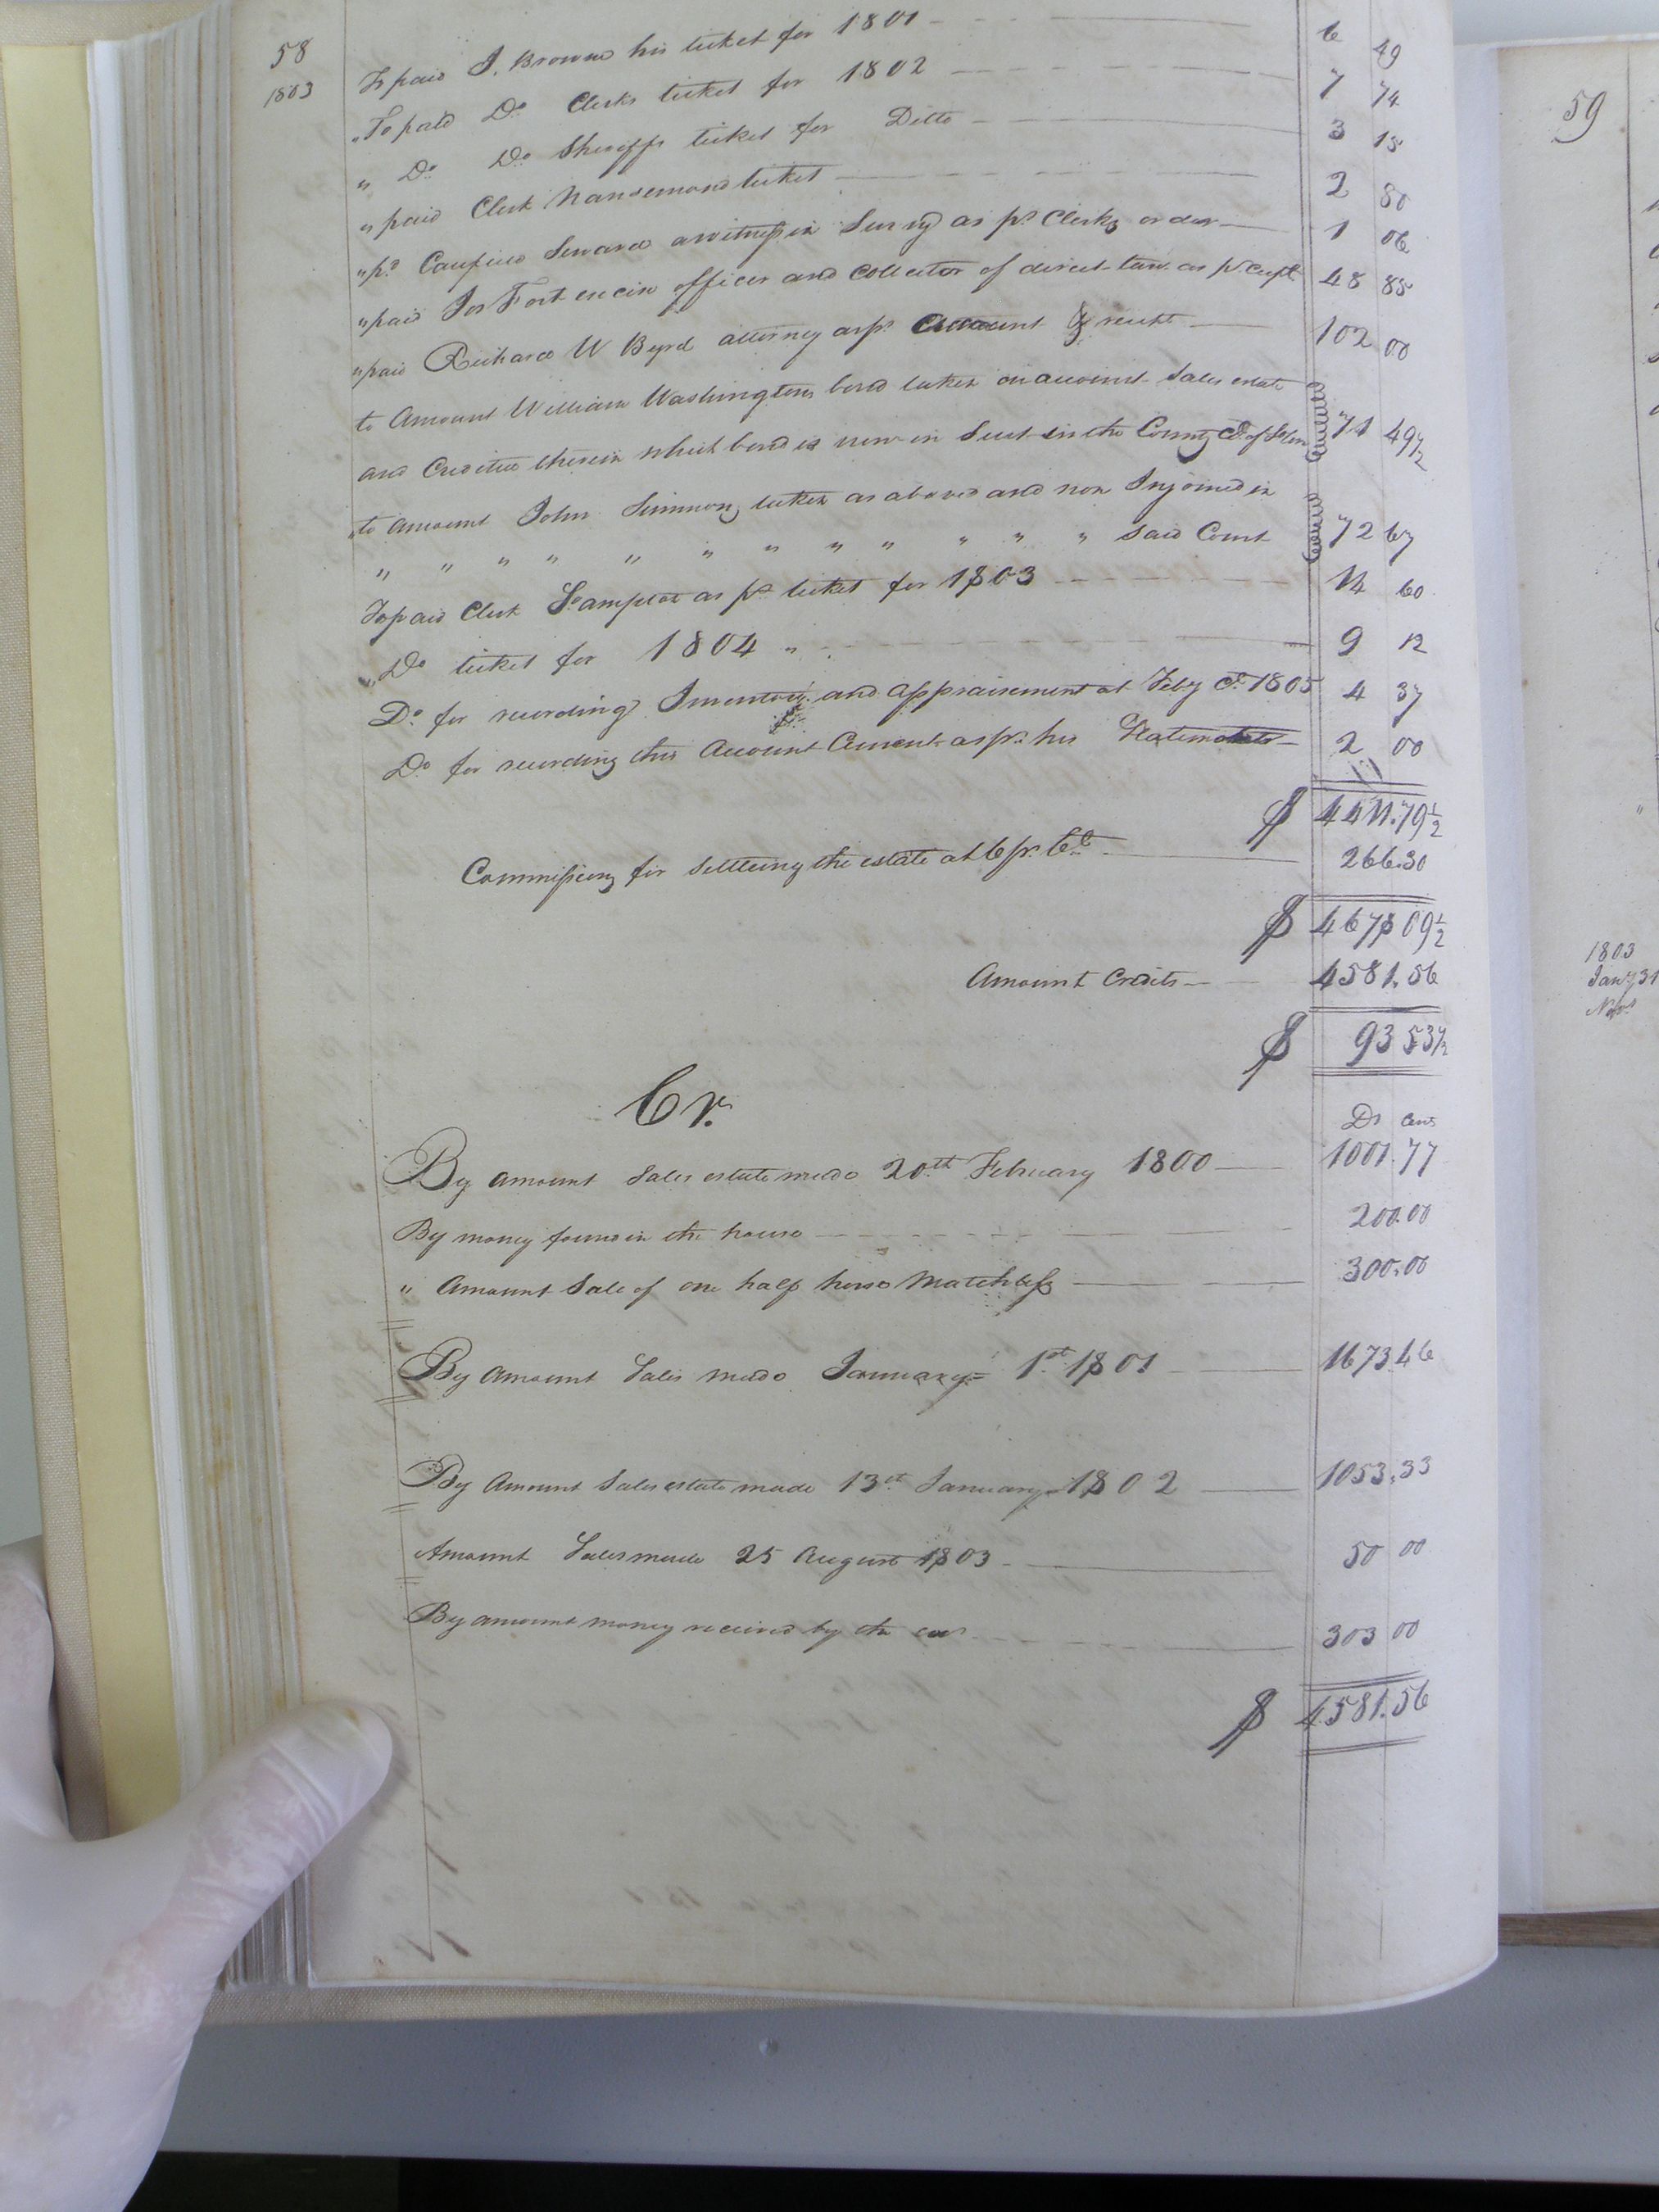 58
1803
To paid J. Browne his ticket for 1801 6 49
" To paid Do Clerks ticket for 1802 7 74
" Do Do Sheriffs ticket for Ditto 3 15
" paid Clerk Nansemond ticket 2 80
" pd. Caufield Seward a witness in Surry as pr. Clerks order 1 06
" paid Jos Fort excise officer and Collector of direct tax as pr. recpt 48 85
" paid Richard W Byrd attorney as pr. Account & receipt 102 00
to Amount William Washingtons bond taken on account sales estate
and Credited therein which bond is now in Suit in the County Ct. of 71 49 1/2
" to amount John Simmons taken as above and now Injoined in
" " " " " " " " " " " " said Court 72 67
To paid Clerk So. ampton as pr. ticket for 1803 14 60
" Do ticket for 1804 " 9 12
Do. for recording Inventory and appraisement at Feby Ct. 1805 4 37
Do for recording this Account Current as pr. his Statement 2 00
$ 4411.79 1/2
Commissions for settleing the estate at 6 pr. Ct. 266.30
$ 4678 09 1/2
Amount Credits 4581.56
$ 93 53 1/2
Cr.
Ds Cents
By amount Sales estate made 20th February 1800 1001.77
By money found in the house 200.00
" Amount Sale of one half horse Matchless 300.00
By Amount Sales made January 1st. 1801 1673.46
By Amount Sales estate made 13th January 1802 1053.33
Amount Sales made 25 August 1803 50 00
By amount money received by the 303 00
$ 4581.56
59
1803
Jany 31
Novr